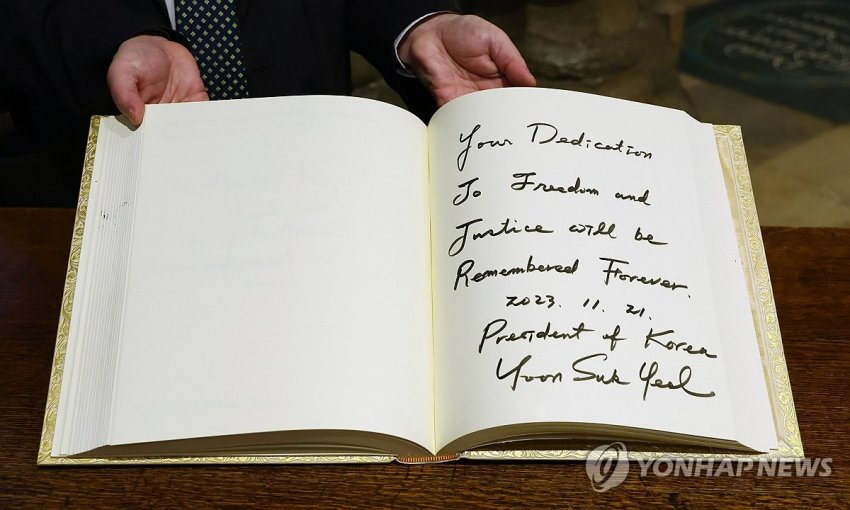 Your Dedication
To Freedom and
Justice will be
Remembered Forever.
2023. 11. 21.
President of Korea
Yoon Suk Yeol
YONHAP NEWS